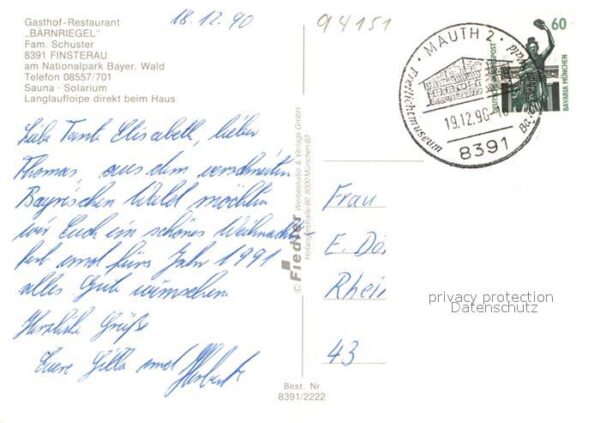 Gasthof-Restaurant
„BÄRNRIEGEL"
Fam. Schuster
8391 FINSTERAU
am Nationalpark Bayer. Wald
Telefon 08557/701
Sauna · Solarium
Langlaufloipe direkt beim Haus
18.12.90
94151
MAUTH 2
Freilichtmuseum
19.12.90
8391
60
DEUTSCHE BUNDESPOST
BAVARIA MÜNCHEN
Liebe Tante Elisabeth, lieber
Thomas, aus dem verschneiten
Bayrischen Wald möchten
wir Euch ein schönes Weihnachts-
fest und fürs Jahr 1991
alles Gute wünschen.
Herzliche Grüße
Eure Gilla und Herbert
© Fiedler Werbestudio & Verlags GmbH
8000 München 83
Frau
E. Dör
Rhein
43
privacy protection
Datenschutz
Best. Nr.
8391/2222